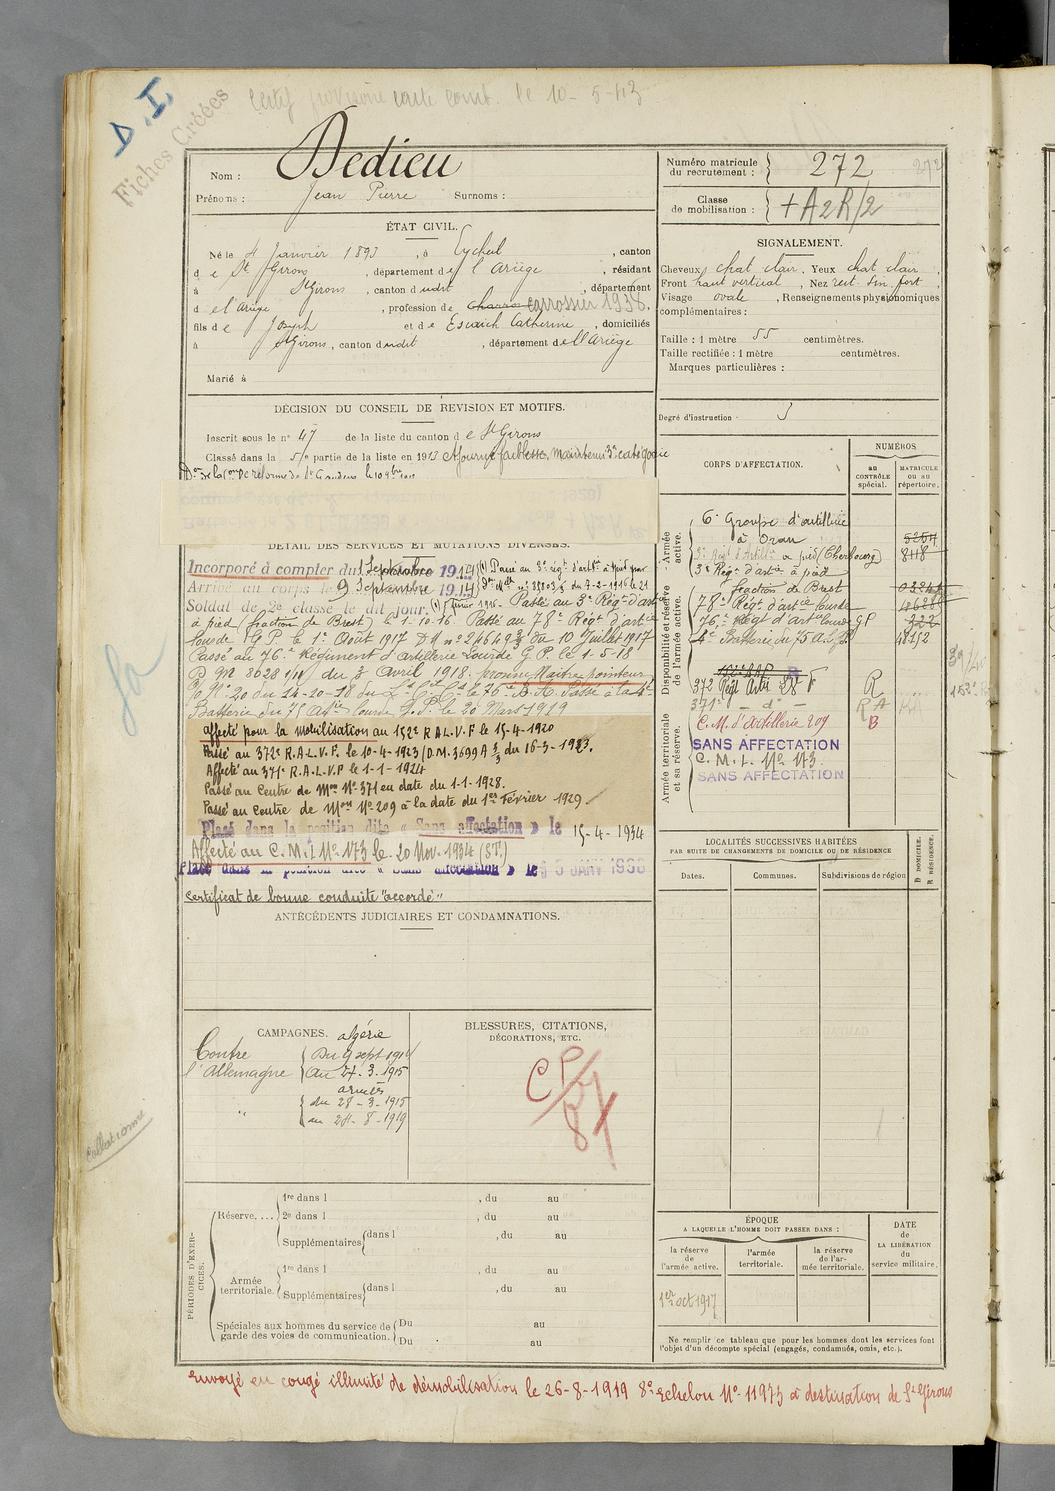 D.I.
Fiches Créées
Certif provisoire carte comb. le 10-5-43
Nom : Dedieu
Prénoms : Jean Pierre Surnoms :
Numéro matricule du recrutement : 272
272
Classe de mobilisation : +A2R/2
ÉTAT CIVIL.
Né le 4 Janvier 1893, à Eycheil, canton
de St Girons, département de l'Ariège, résidant
à St Girons, canton dudit, département
de l'Ariège, profession de Charron carrossier 1938.
fils de Joseph et de Escaich Catherine, domiciliés
à St Girons, canton dudit, département de l'Ariège
Marié à
SIGNALEMENT.
Cheveux chat clair, Yeux chat clair,
Front haut vertical, Nez rect. sin. fort,
Visage ovale, Renseignements physionomiques
complémentaires :
Taille : 1 mètre 55 centimètres.
Taille rectifiée : 1 mètre centimètres.
Marques particulières :
Degré d'instruction : 3
DÉCISION DU CONSEIL DE RÉVISION ET MOTIFS.
Inscrit sous le n° 47 de la liste du canton de St Girons
Classé dans la 5e partie de la liste en 1913 Ajourné faiblesse, Maintenu 3e catégorie
DÉTAIL DES SERVICES ET MUTATIONS DIVERSES.
Incorporé à compter du 1 Septembre 1914 (1) Passé au 3e régt d'artie à pied par
Arrivé au corps le 9 Septembre 1914
Soldat de 2e classe le dit jour. Passé au 3e Régt d'artie
à pied (fraction de Brest) le 1-10-16. Passé au 78e Régt d'artie
lourde G.P. le 1er Août 1917 DM n° 24649 3/3 du 10 Juillet 1917
Passé au 76e Régiment d'artillerie Lourde G.P. le 1-5-18
D.M. 8028 1/11 du 3 Avril 1918. promu Maître pointeur
O. N° 20 du 24-10-18 du Passé à la 4e
Batterie du 75 Artie lourde G.P. le 20 Mars 1919
affecté pour la mobilisation au 152e R.A.L.V.F le 15-4-1920
Passé au 372e R.A.L.V.F. le 10-4-1923 (D.M. 3699 A 3/3 du 16-3-1923.
Affecté au 371e R.A.L.V.P le 1-1-1924
Passé au Centre de Mon N° 371 en date du 1-1-1928.
Passé au Centre de Mon N° 209 à la date du 1er Février 1929.
Placé dans la position dite « Sans affectation » le 15-4-1934
Affecté au C.M.I. N° 173 le 20 Nov. 1934 (ST.)
Placé dans la position dite « Sans affectation » le JANV 1936
Certificat de bonne conduite "accordé"
CORPS D'AFFECTATION.
NUMÉROS
au CONTRÔLE spécial.
MATRICULE OU AU répertoire.
Armée active.
6e Groupe d'artillerie
à Oran
3e Régt d'Artie à pied (Cherbourg) 8118
3e Régt d'artie à pied
fraction de Brest
Disponibilité et réserve de l'armée active.
78e Régt d'artie lourde
76e Régt d'artie lourde GP
4e Batterie du 75 A.L.G.P.
372 Régt Artie LVF R
371e - d° - RA
Armée territoriale et sa réserve.
C.M. d'artillerie 209 B
SANS AFFECTATION
C.M.I. N° 173.
SANS AFFECTATION
LOCALITÉS SUCCESSIVES HABITÉES
PAR SUITE DE CHANGEMENTS DE DOMICILE OU DE RÉSIDENCE
Dates. Communes. Subdivisions de région
D DOMICILE. R RÉSIDENCE.
ANTÉCÉDENTS JUDICIAIRES ET CONDAMNATIONS.
CAMPAGNES.
Contre l'Allemagne
algérie
Du 9 sept 1914
Au 27-3-1915
armées
du 28-3-1915
au 24-8-1919
BLESSURES, CITATIONS,
DÉCORATIONS, ETC.
Collationné
PÉRIODES D'EXERCICES.
Réserve.... 1re dans l , du au
2e dans l , du au
Supplémentaires dans l , du au
Armée territoriale. 1re dans l , du au
Supplémentaires dans l , du au
Spéciales aux hommes du service de garde des voies de communication. Du au
Du au
ÉPOQUE
A LAQUELLE L'HOMME DOIT PASSER DANS :
la réserve de l'armée active.
l'armée territoriale.
la réserve de l'armée territoriale.
DATE de LA LIBÉRATION du service militaire.
1er oct 1917
Ne remplir ce tableau que pour les hommes dont les services font
l'objet d'un décompte spécial (engagés, condamnés, omis, etc.).
envoyé en congé illimité de démobilisation le 26-8-1919 8e echelon N° 11973 à destination de St Girons